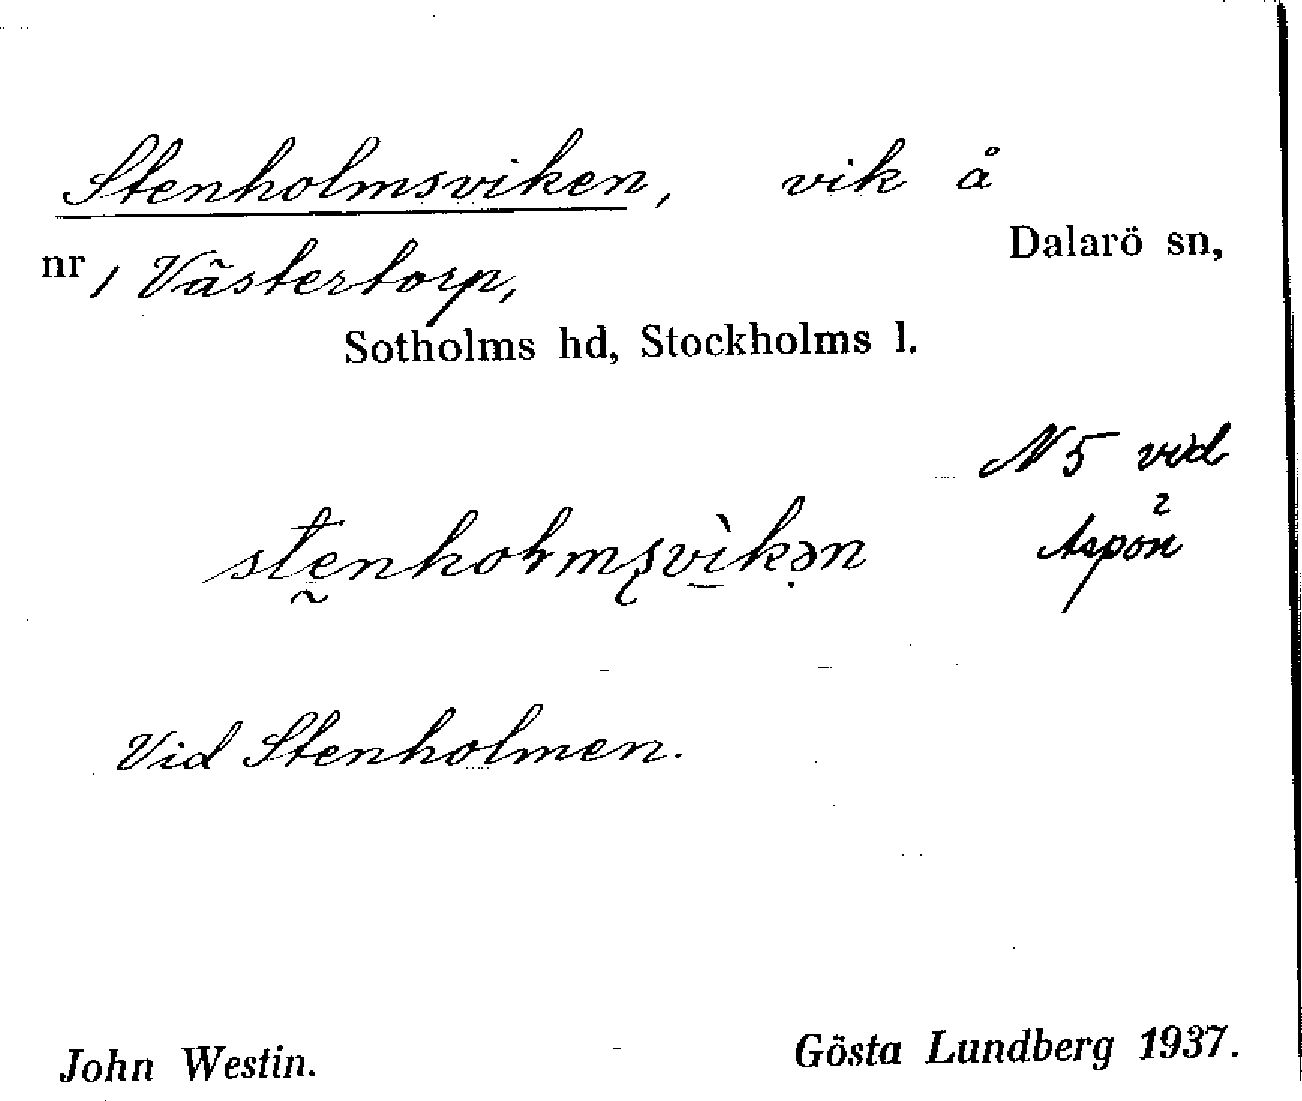 Stenholmsviken, vik å
Dalarö sn,
nr 1 Västertorp,
Sotholms hd, Stockholms l.
N 5 vid
Aspön
stenholmsvìkən
Vid Stenholmen.
John Westin. Gösta Lundberg 1937.